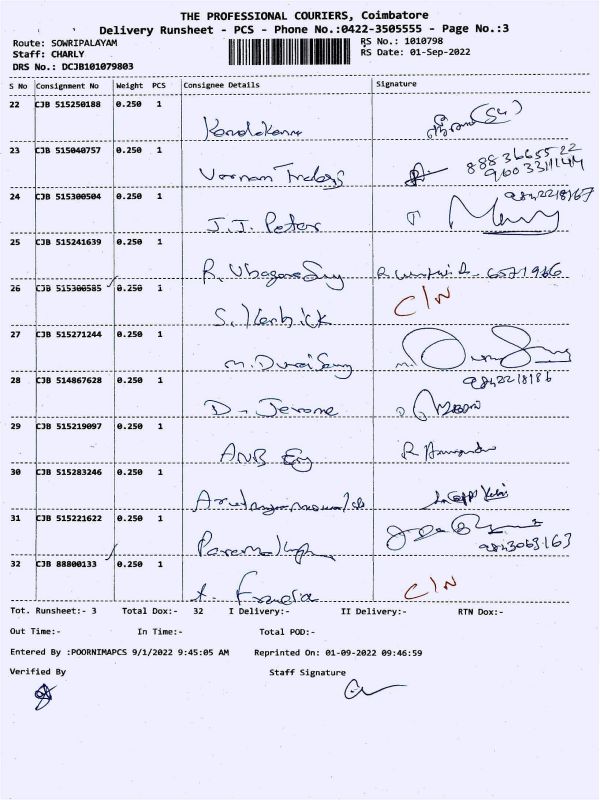 THE PROFESSIONAL COURIERS, Coimbatore
Delivery Runsheet - PCS - Phone No.:0422-3505555 - Page No.:3
Route: SOWRIPALAYAM RS No.: 1010798
Staff: CHARLY RS Date: 01-Sep-2022
DRS No.: DCJB101079803
S No Consignment No Weight PCS Consignee Details Signature
22 CJB 515250188 0.250 1
23 CJB 515040757 0.250 1
8883665522
Traders
24 CJB 515300504 0.250 1 9842218167
J.J. Peter
25 CJB 515241639 0.250 1
R. 6571966
26 CJB 515300585 0.250 1 C/N
S.
27 CJB 515271244 0.250 1
M. Durai Samy
28 CJB 514867628 0.250 1 9842218186
D. Jerome
29 CJB 515219097 0.250 1
ANB Eng
30 CJB 515283246 0.250 1
31 CJB 515221622 0.250 1
9843063163
32 CJB 88800133 0.250 1 C/N
Tot. Runsheet:- 3 Total Dox:- 32 I Delivery:- II Delivery:- RTN Dox:-
Out Time:- In Time:- Total POD:-
Entered By :POORNIMAPCS 9/1/2022 9:45:05 AM Reprinted On: 01-09-2022 09:46:59
Verified By Staff Signature